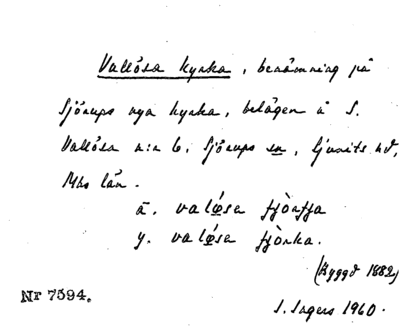 Vallösa kyrka, benämning på
Sjörups nya kyrka, belägen å S.
Vallösa n:r 6, Sjörups sn, Ljunits hd,
Mhs län.
ä. valǿsa
y. valǿsa
(Byggd 1882)
Nr 7594.
S. Ingers 1960.